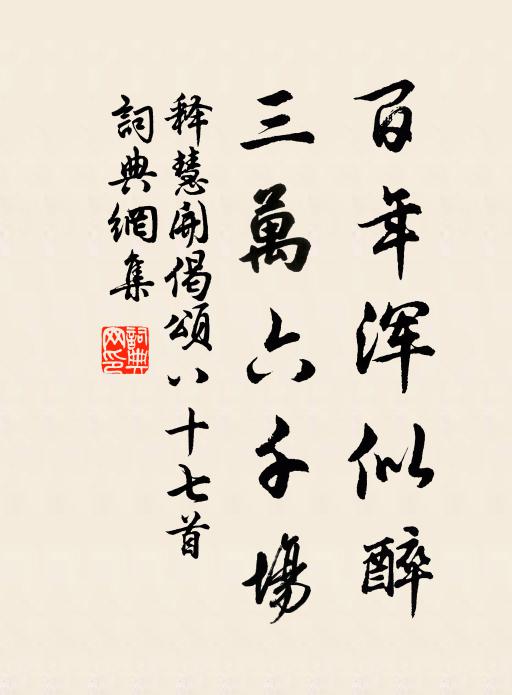 百年浑似醉
三萬六千場
释慧開偈頌八十七首
詞典網集
詞典網印